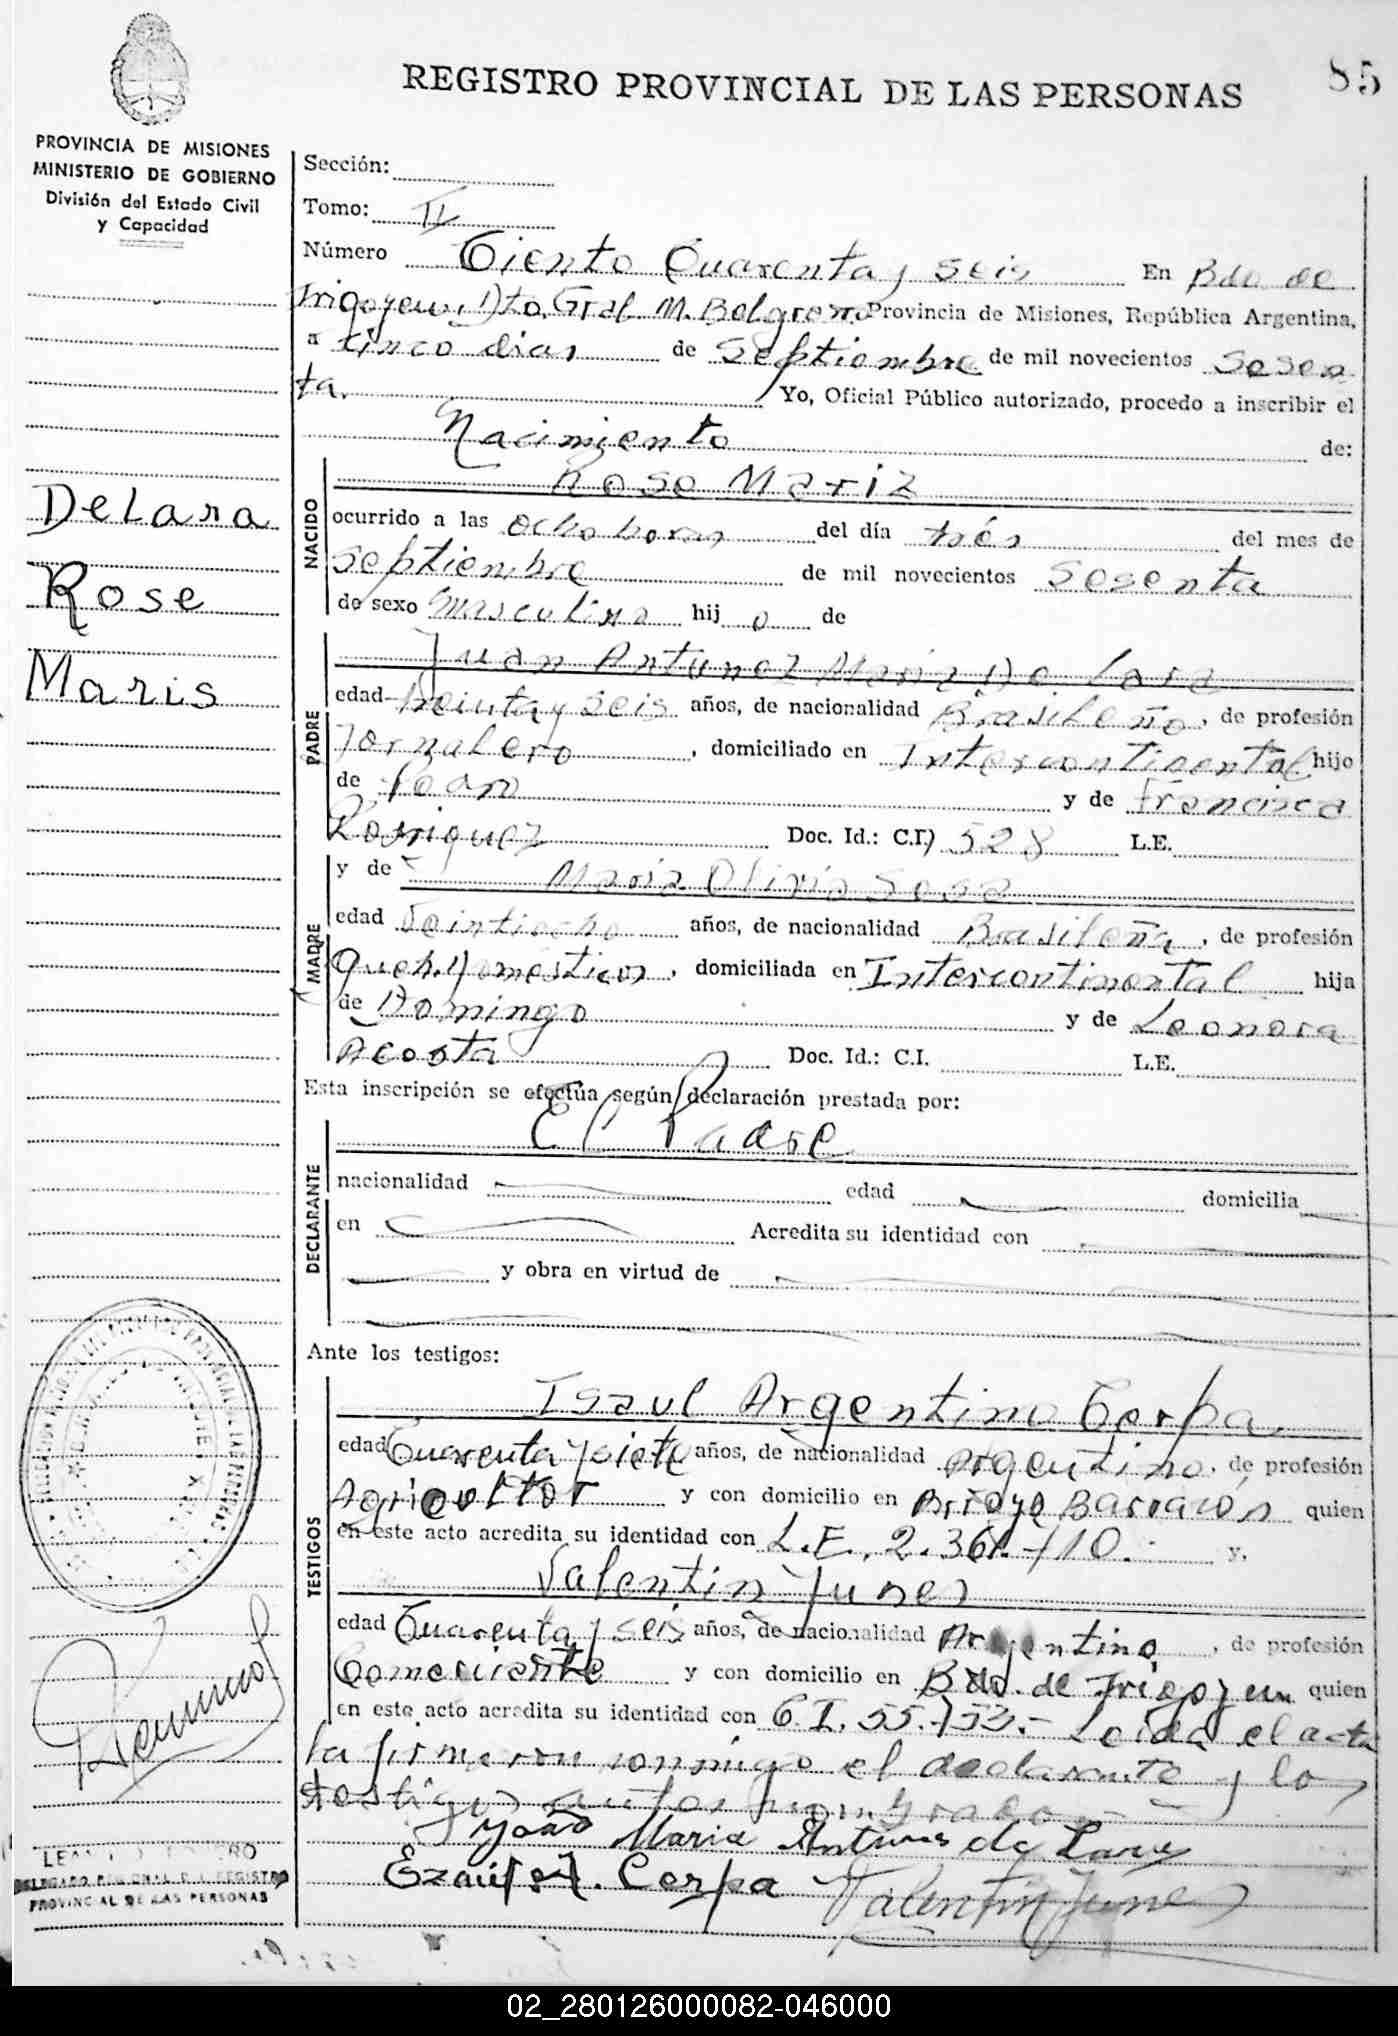 85
REGISTRO PROVINCIAL DE LAS PERSONAS
PROVINCIA DE MISIONES
MINISTERIO DE GOBIERNO
División del Estado Civil
y Capacidad
DeLara
Rose
Maris
Sección:
Tomo: II
Número Ciento Cuarenta y seis En Bdo de
Irigoyen, Dto. Gral M. Belgrano Provincia de Misiones, República Argentina,
a cinco dias de Septiembre de mil novecientos sesen
ta. Yo, Oficial Público autorizado, procedo a inscribir el
Nacimiento de:
NACIDO
Rose Mariz
ocurrido a las ocho horas del día trés del mes de
Septiembre de mil novecientos Sesenta
de sexo masculino hij o de
PADRE
Juan Antunez Maria De Lara
edad treinta y seis años, de nacionalidad Brasileño, de profesión
Jornalero, domiciliado en Intercontinental hijo
de y de Francisca
Rodriguez Doc. Id.: C.I.) 528 L.E.
MADRE
y de Maria Olivia Sosa
edad Veintiocho años, de nacionalidad Brasileña, de profesión
Queh. Domésticos, domiciliada en Intercontinental hija
de Domingo y de Leonora
Acosta Doc. Id.: C.I. L.E.
Esta inscripción se efectúa según declaración prestada por:
DECLARANTE
El Padre
nacionalidad edad domicilia
en Acredita su identidad con
y obra en virtud de
Ante los testigos:
TESTIGOS
Isaul Argentino Cerpa
edad Cuarenta y siete años, de nacionalidad Argentino, de profesión
Agricultor y con domicilio en Arroyo Barracón quien
en este acto acredita su identidad con L.E. y,
Valentin Junes
edad Cuarenta y seis años, de nacionalidad Argentino, de profesión
Comerciante y con domicilio en Bdo. de Irigoyen quien
en este acto acredita su identidad con C.I. 55.753.- Leida el acta
la firmaron conmigo el declarante y los
testigos antes nombrados
João Maria Antunes de Lara
Ezaul A. Cerpa Valentin Junes
DELEGADO REGIONAL DEL REGISTRO
PROVINCIAL DE LAS PERSONAS
02_280126000082-046000